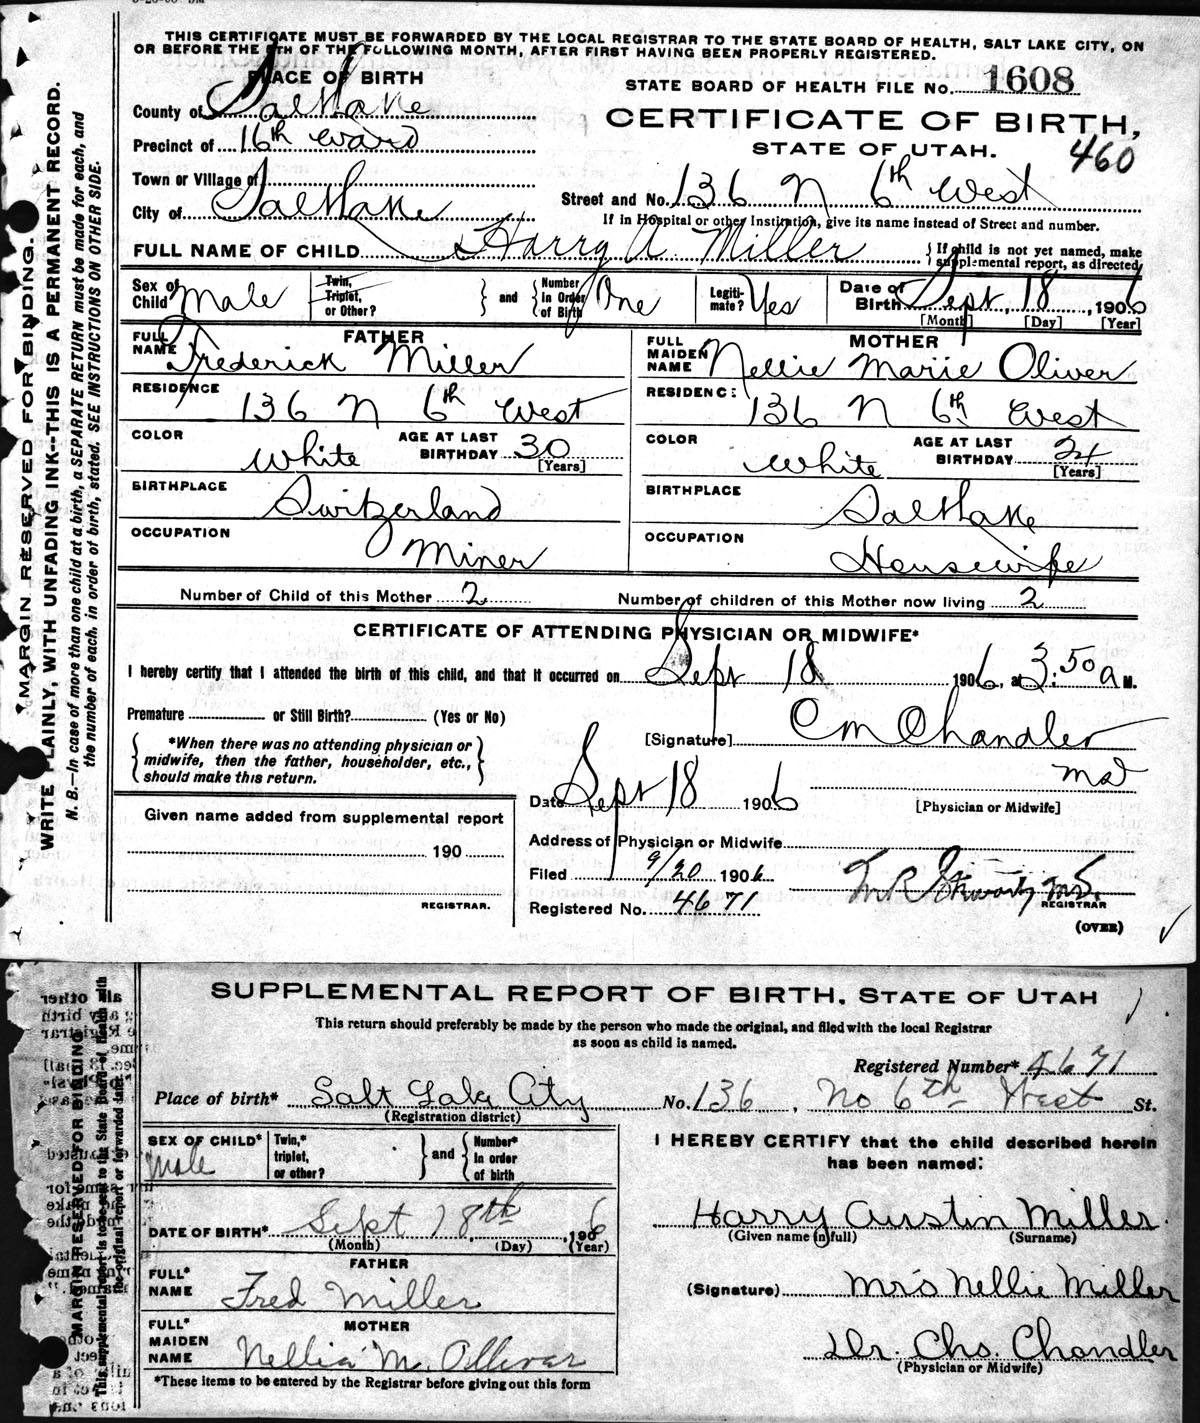 THIS CERTIFICATE MUST BE FORWARDED BY THE LOCAL REGISTRAR TO THE STATE BOARD OF HEALTH, SALT LAKE CITY, ON
OR BEFORE THE 5TH OF THE FOLLOWING MONTH, AFTER FIRST HAVING BEEN PROPERLY REGISTERED.
PLACE OF BIRTH
STATE BOARD OF HEALTH FILE NO. 1608
County of Salt Lake
CERTIFICATE OF BIRTH,
Precinct of 16th Ward
STATE OF UTAH. 460
Town or Village of
City of Salt Lake
Street and No. 136 N 6th West
If in Hospital or other Institution, give its name instead of Street and number.
FULL NAME OF CHILD Harry A. Miller {If child is not yet named, make
supplemental report, as directed
Sex of Child Male Twin, Triplet, or Other? } and { Number In Order of Birth One Legiti-mate? Yes Date of Birth Sept 18, 1906
[Month] [Day] [Year]
FATHER
FULL NAME Frederick Miller
RESIDENCE 136 N 6th West
COLOR White AGE AT LAST BIRTHDAY 30
[Years]
BIRTHPLACE Switzerland
OCCUPATION Miner
MOTHER
FULL MAIDEN NAME Nellie Marie Oliver
RESIDENCE: 136 N 6th West
COLOR White AGE AT LAST BIRTHDAY 24
[Years]
BIRTHPLACE Salt Lake
OCCUPATION Housewife
Number of Child of this Mother 2 Number of children of this Mother now living 2
CERTIFICATE OF ATTENDING PHYSICIAN OR MIDWIFE*
I hereby certify that I attended the birth of this child, and that it occurred on Sept 18 1906, at 3:50 a M.
Premature or Still Birth? (Yes or No)
{ *When there was no attending physician or
midwife, then the father, householder, etc.,
should make this return. }
[Signature] C M Chandler
Md
Date Sept 18 1906 [Physician or Midwife]
Given name added from supplemental report
190
REGISTRAR.
Address of Physician or Midwife
Filed 9/20 1906
Registered No. 4671
REGISTRAR
(OVER)
MARGIN RESERVED FOR BINDING.
WRITE PLAINLY, WITH UNFADING INK--THIS IS A PERMANENT RECORD.
N. B.--In case of more than one child at a birth, a SEPARATE RETURN must be made for each, and
the number of each, in order of birth, stated. SEE INSTRUCTIONS ON OTHER SIDE.
SUPPLEMENTAL REPORT OF BIRTH, STATE OF UTAH
This return should preferably be made by the person who made the original, and filed with the local Registrar
as soon as child is named.
Registered Number* 4671
Place of birth* Salt Lake City No. 136, No 6th West St.
(Registration district)
SEX OF CHILD* Male Twin,* triplet, or other? } and { Number* In order of birth
DATE OF BIRTH* Sept 18th, 1906
(Month) (Day) (Year)
FATHER
FULL* NAME Fred Miller
MOTHER
FULL* MAIDEN NAME Nellia M. Ollivar
*These items to be entered by the Registrar before giving out this form
I HEREBY CERTIFY that the child described herein
has been named:
Harry Austin Miller.
(Given name in full) (Surname)
(Signature) Mrs Nellie Miller
Dr. Chs. Chandler
(Physician or Midwife)
MARGIN RESERVED FOR BINDING
This supplemental report is to be sent to the State Board of Health with
the original report or forwarded later.